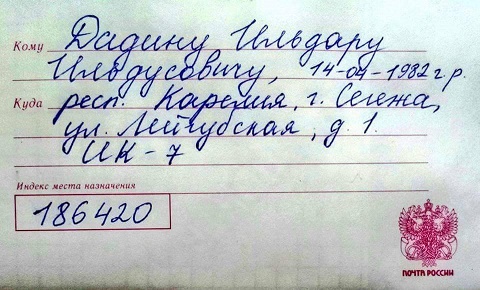 Кому Дадину Ильдару
Ильдусовичу, 14-04-1982 г.р.
Куда респ. Карелия, г. Сегежа,
ул. Лейгубская, д. 1.
ИК-7
Индекс места назначения
186420
ПОЧТА РОССИИ